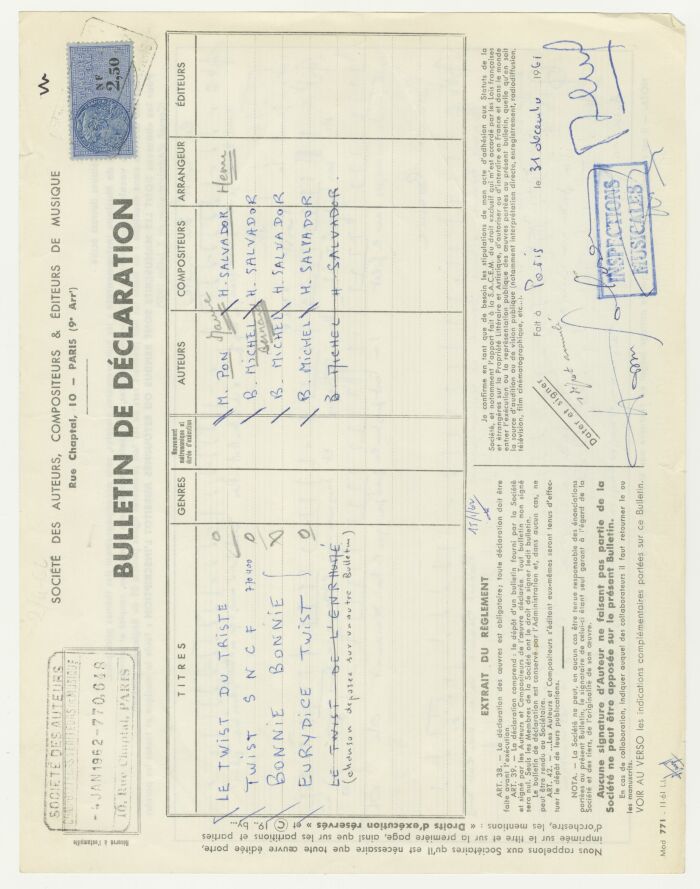 SOCIÉTÉ DES AUTEURS, COMPOSITEURS & ÉDITEURS DE MUSIQUE
Rue Chaptal, 10 — PARIS (9e Arrt)
BULLETIN DE DÉCLARATION
SOCIÉTÉ DES AUTEURS
-4 JAN 1962 - 770,648
10, Rue Chaptal, PARIS
Réservé à l'estampille
NF
2,50
TITRES
GENRES
Mouvement métronomique et durée d'exécution
AUTEURS
COMPOSITEURS
ARRANGEUR
ÉDITEURS
LE TWIST DU TRISTE
M. PON
H. SALVADOR
Henri
TWIST SNCF
770400
B. MICHEL
H. SALVADOR
Bernard
BONNIE BONNIE
B. MICHEL
H. SALVADOR
EURYDICE TWIST
B. MICHEL
H. SALVADOR
LE TWIST DE L'ENRHUMÉ
B. MICHEL
H. SALVADOR.
(chanson déposée sur un autre Bulletin)
EXTRAIT DU RÈGLEMENT
ART. 38. — La déclaration des œuvres est obligatoire; toute déclaration doit être
faite avant l'exécution
ART. 39. — La déclaration comprend : le dépôt d'un bulletin fourni par la Société
et signé par les Auteurs et Compositeurs de l'œuvre déclarée. Tout bulletin non signé
sera nul. Seuls les Membres de la Société ont le droit de signer ledit bulletin.
Le bulletin de déclaration est conservé par l'Administration et, dans aucun cas, ne
peut être rendu au Sociétaire.
ART. 42. — ...Les Auteurs et Compositeurs s'éditant eux-mêmes seront tenus d'effec-
tuer le dépôt de leurs publications.
NOTA. — La Société ne peut, en aucun cas être tenue responsable des énonciations
portées au présent Bulletin, le signataire de celui-ci étant seul garant à l'égard de la
Société et des tiers, de l'originalité de son œuvre.
Aucune signature d'Auteur ne faisant pas partie de la
Société ne peut être apposée sur le présent Bulletin.
En cas de collaboration, indiquer auquel des collaborateurs il faut retourner le ou
les manuscrits.
VOIR AU VERSO les indications complémentaires portées sur ce Bulletin.
Mod 771 - 11 61
15/1/62
Je confirme en tant que de besoin les stipulations de mon acte d'adhésion aux Statuts de la
Société, et notamment l'apport fait à la S.A.C.E.M. du droit exclusif qui m'est accordé par les Lois françaises
et étrangères sur la Propriété Littéraire et Artistique, d'autoriser ou d'interdire en France et dans le monde
entier l'exécution ou la représentation publique des œuvres portées au présent bulletin, quelle qu'en soit
la source d'audition ou de vision publique (notamment interprétation directe, enregistrement, radiodiffusion,
télévision, film cinématographique, etc...).
Fait à Paris le 31 décembre 1961
Dater et signer
INSPECTIONS
MUSICALES
Nous rappelons aux Sociétaires qu'il est nécessaire que toute œuvre éditée, porte,
imprimée sur le titre et sur la première page, ainsi que sur les partitions et parties
d'orchestre, les mentions : « Droits d'exécution réservés » et © 19.. by...